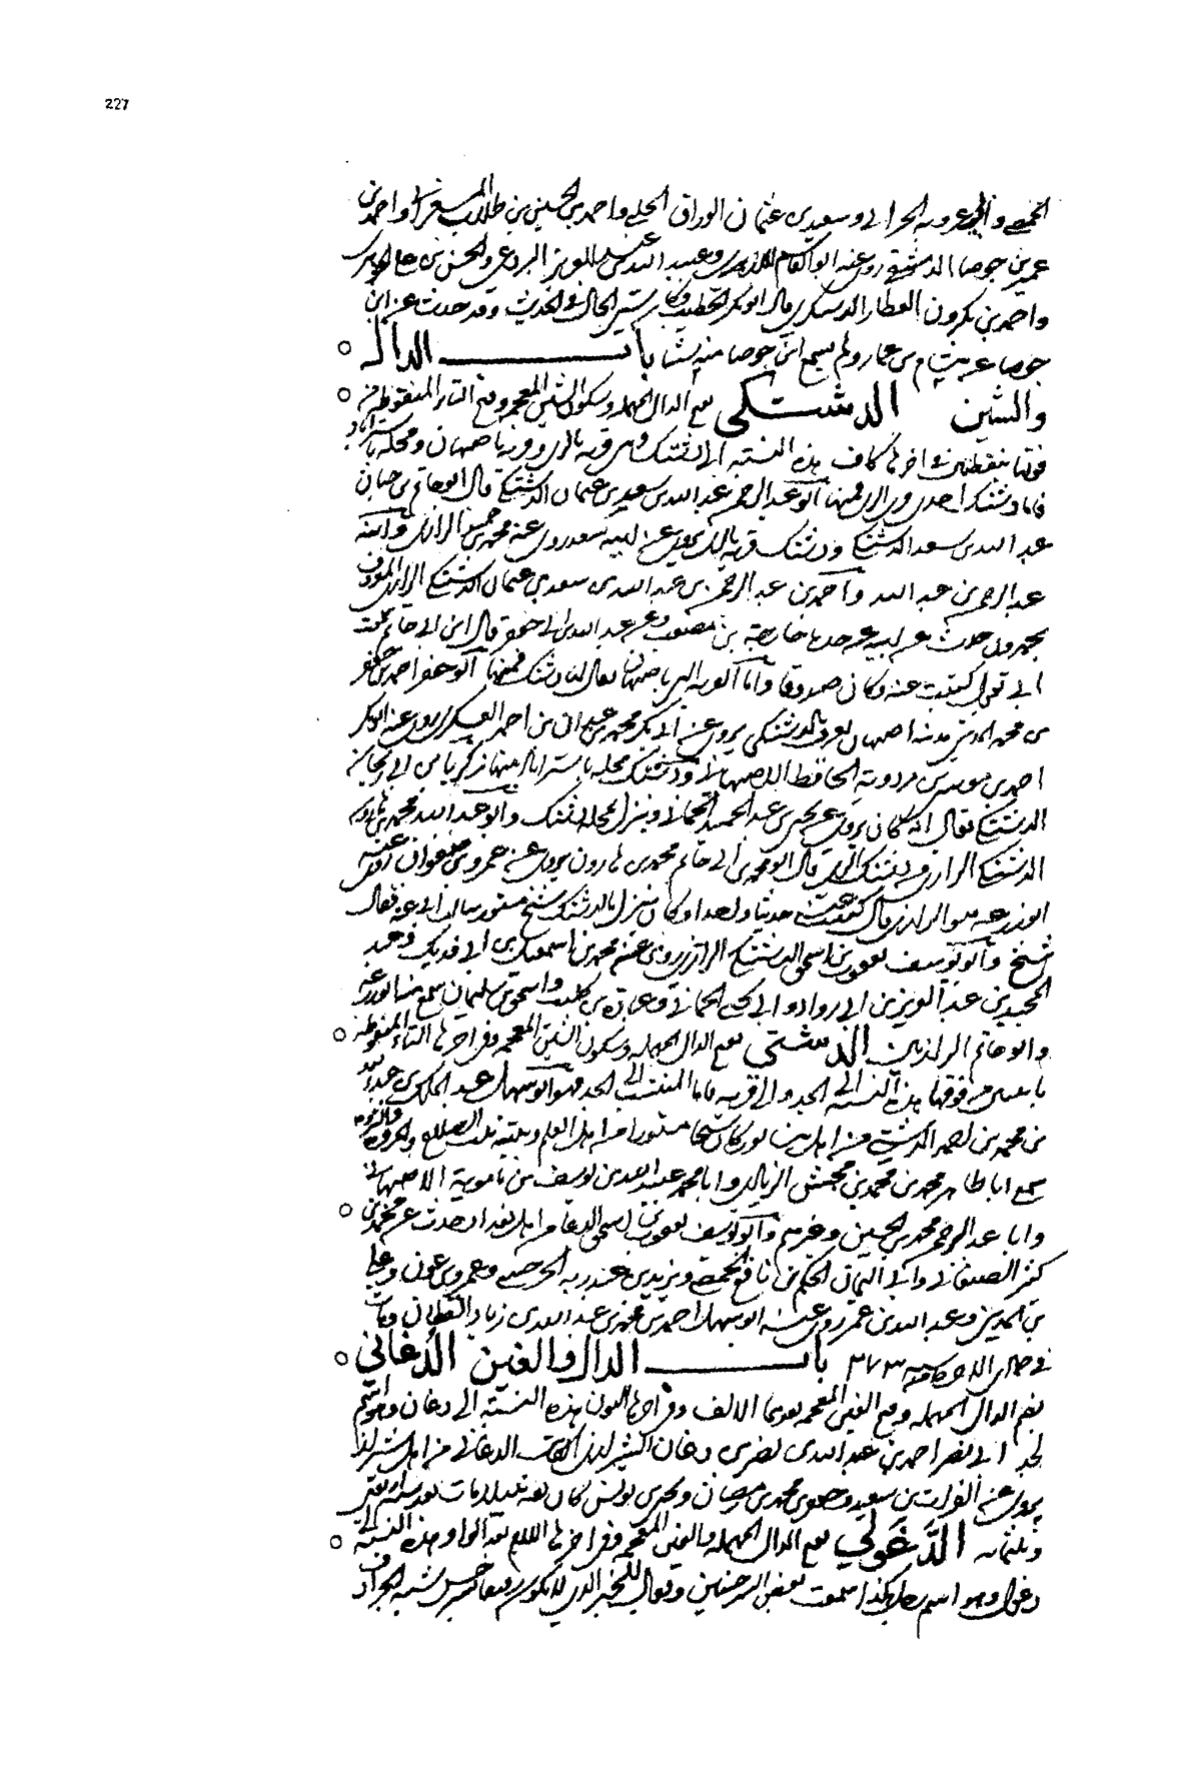 227
الحمصي وابي عروبة الحراني وسعيد بن عثمان الوراق الحلبي واحمد بن الحسين بن طلاب المشغرائي واحمد بن
عمير بن جوصا الدمشقي روى عنه ابو القاسم الازهري وعبيد الله بن عبد العزيز البرذعي والحسن بن علي الجوهري
واحمد بن بكرون العطار الدسكري قال ابو بكر الخطيب وكان ستير الحال في الحديث وقد حدث عن ابن
جوصا عن هشام بن عمار ولم يسمع ابن جوصا منه شيا باب الدال
والشين الدشتكي بفتح الدال المهملة وسكون الشين المعجمة وفتح التاء المنقوطة من
فوقها بنقطتين في اخرها كاف هذه النسبة الى دشتك وهي قرية بالري وقرية باصبهان ومحلة باستراباد
فاما دشتك احدى قرى الري فمنها ابو عبد الرحمن عبد الله بن سعيد بن عثمان الدشتكي قال ابو حاتم بن حبان
عبد الله بن سعد الدشتكي ودشتك قرية بالري يروي عن ابيه سعد روى عنه محمد بن حميد الرازي وابنه
عبد الرحمن بن عبد الله واحمد بن عبد الرحمن بن عبد الله بن سعد بن عثمان الدشتكي الرازي المعروف
بحمدون حدث عن ابيه عن خارجة بن مصعب وعن عبد الله بن ابي جعفر قال ابن ابي حاتم سمعت
ابي يقول كتبت عنه وكان صدوقا واما القرية التي باصبهان يقال لها دشتك فمنها ابو جعفر احمد بن جعفر
بن محمد المديني مدينة اصبهان يعرف بالدشتكي يروي عن ابي بكر محمد بن عبدان بن احمد العسكري روى عنه ابو بكر
احمد بن موسى بن مردويه الحافظ الاصبهاني ودشتك محلة باستراباد منها زكريا بن
الدشتكي يقال انه كان يروي عن يحيى بن عبد الحميد الحماني وينزل محلة دشتك وابو عبد الله محمد بن هارون
الدشتكي الرازي من دشتك الري قال ابو محمد بن ابي حاتم محمد بن هارون يروي عن عمرو بن صفوان روى عنه
ابو زرعة الرازي قال كتبت عنه حديثا واحدا وكان ينزل بالدشتك شيخ مستور سالت ابي عنه فقال
شيخ وابو يوسف يعقوب بن اسحق الدشتكي الرازي روى عن محمد بن اسمعيل بن ابي فديك وعبد
المجيد بن عبد العزيز بن ابي رواد وابي يحيى الحماني وعبادة بن كليب واسحق بن سليمان سمع منه ابو زرعة
وابو حاتم الرازيين الدشتي بفتح الدال المهملة وسكون الشين المعجمة وفي اخرها التاء المنقوطة
باثنتين من فوقها هذه النسبة الى الجد والى قرية فاما المنتسب الى الجد فهو ابو سهل عبد الملك بن عبد الله
بن محمد بن احمد الدشتي من اهل نيسابور كان شيخا مستورا من اهل العلم وبيته بيت الصلاح والمروة
سمع ابا طاهر محمد بن محمد بن محمش الزيادي وابا محمد عبد الله بن يوسف بن بامويه الاصبهاني
وابا عبد الرحمن محمد بن الحسين وغيرهم وابو يوسف يعقوب بن اسحق الدعا من اهل بغداد حدث عن محمد بن
كثير الصنعاني وابي اليمان الحكم بن نافع الحمصي ويزيد بن عبد ربه الجرجسي وعمرو بن عون وعلي
بن المديني وعبد الله بن عمر روى عنه ابو سهل احمد بن محمد بن عبد الله بن زياد القطان ومات
في جمادى الاخرة سنة ٢٧٣ باب الدال والغين الدغاني
بضم الدال المهملة وفتح الغين المعجمة بعدها الالف وفي اخرها النون هذه النسبة الى دغان وهو اسم
لجد ابي نصر احمد بن عبد الله بن نصر بن دغان
يروي عن الفرات بن سعيد ويحيى بن يونس كان ثقة نبيلا مات بعد سنة
وثلثمائة الدغولي بفتح الدال المهملة والغين المعجمة وفي اخرها اللام بعد الواو هذه النسبة الى
دغول وهو اسم رجل هكذا سمعت بعض السرخسيين ويقال للخبز الذي لا يكون رقيقا بسرخس شبيه الجرادق